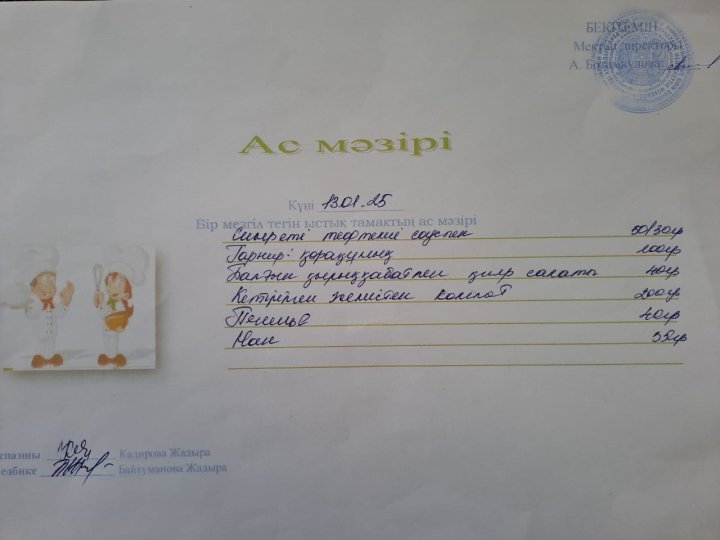 БЕКІТЕМІН
Мектеп директоры
А.
Ас мәзірі
Күні 13.01.25
Бір мезгіл тегін ыстық тамақтың ас мәзірі
Сиыр еті тефтелиі соуспен 50/30гр
Гарнир: қарақұмық 100гр
Балғын қырыққабат пен қияр салаты 40гр
Кептірілген жемістен компот 200гр
Печенье 40гр
Нан 35гр
спазшы Кадирова Жадыра
едбике Байтуманова Жадыра